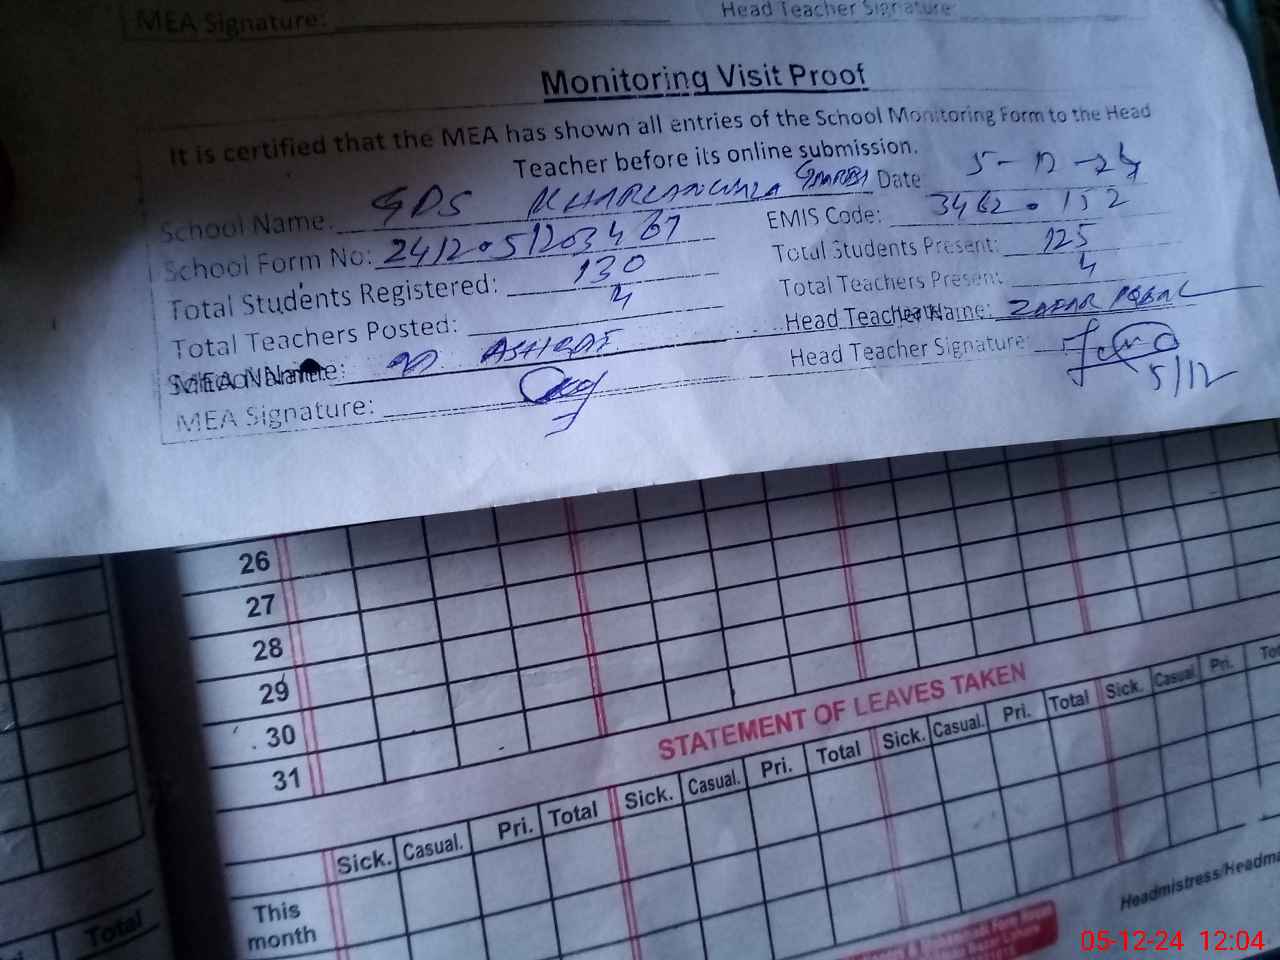 MEA Signature: Head Teacher Signature:
Monitoring Visit Proof
It is certified that the MEA has shown all entries of the School Monitoring Form to the Head
Teacher before its online submission.
School Name: GPS Date 5-12-24
School Form No: 2412.51203467 EMIS Code: 3462.152
Total Students Registered: 130 Total Students Present: 125
Total Teachers Posted: 4 Total Teachers Present: 4
MEA Name: Head Teacher Name: ZAFAR IQBAL
MEA Signature: Head Teacher Signature:
5/12
26
27
28
29
30
31
STATEMENT OF LEAVES TAKEN
Sick. Casual. Pri. Total Sick. Casual. Pri. Total Sick. Casual. Pri. Total Sick. Casual Pri.
This
month
Total
05-12-24 12:04